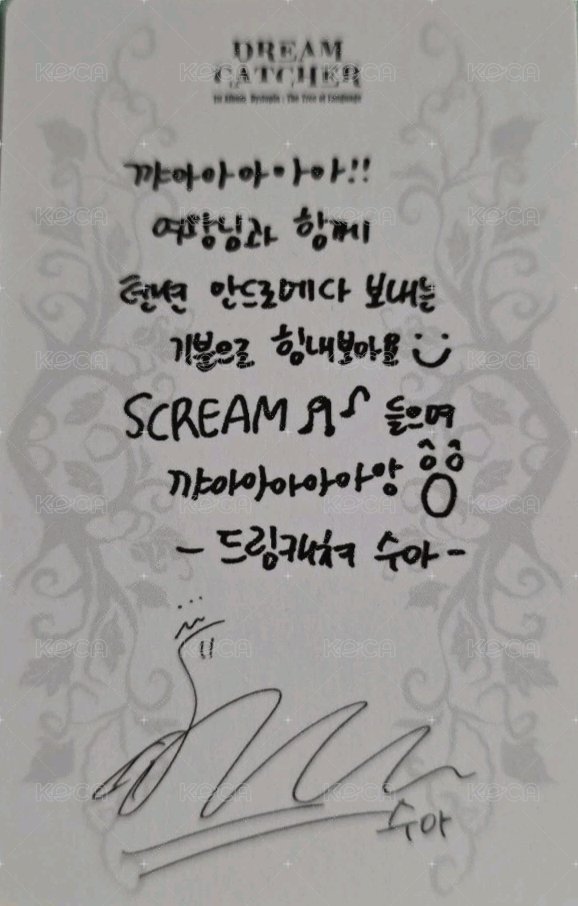 DREAM
CATCHER
1st Album. Dystopia : The Tree of Language
꺄아아아아아!!
여왕님과 함께
텐션 안드로메다 보내는
기분으로 힘내보아욥
SCREAM 들으며
꺄아아아아아앙
- 드림캐쳐 수아 -
수아
KOCA